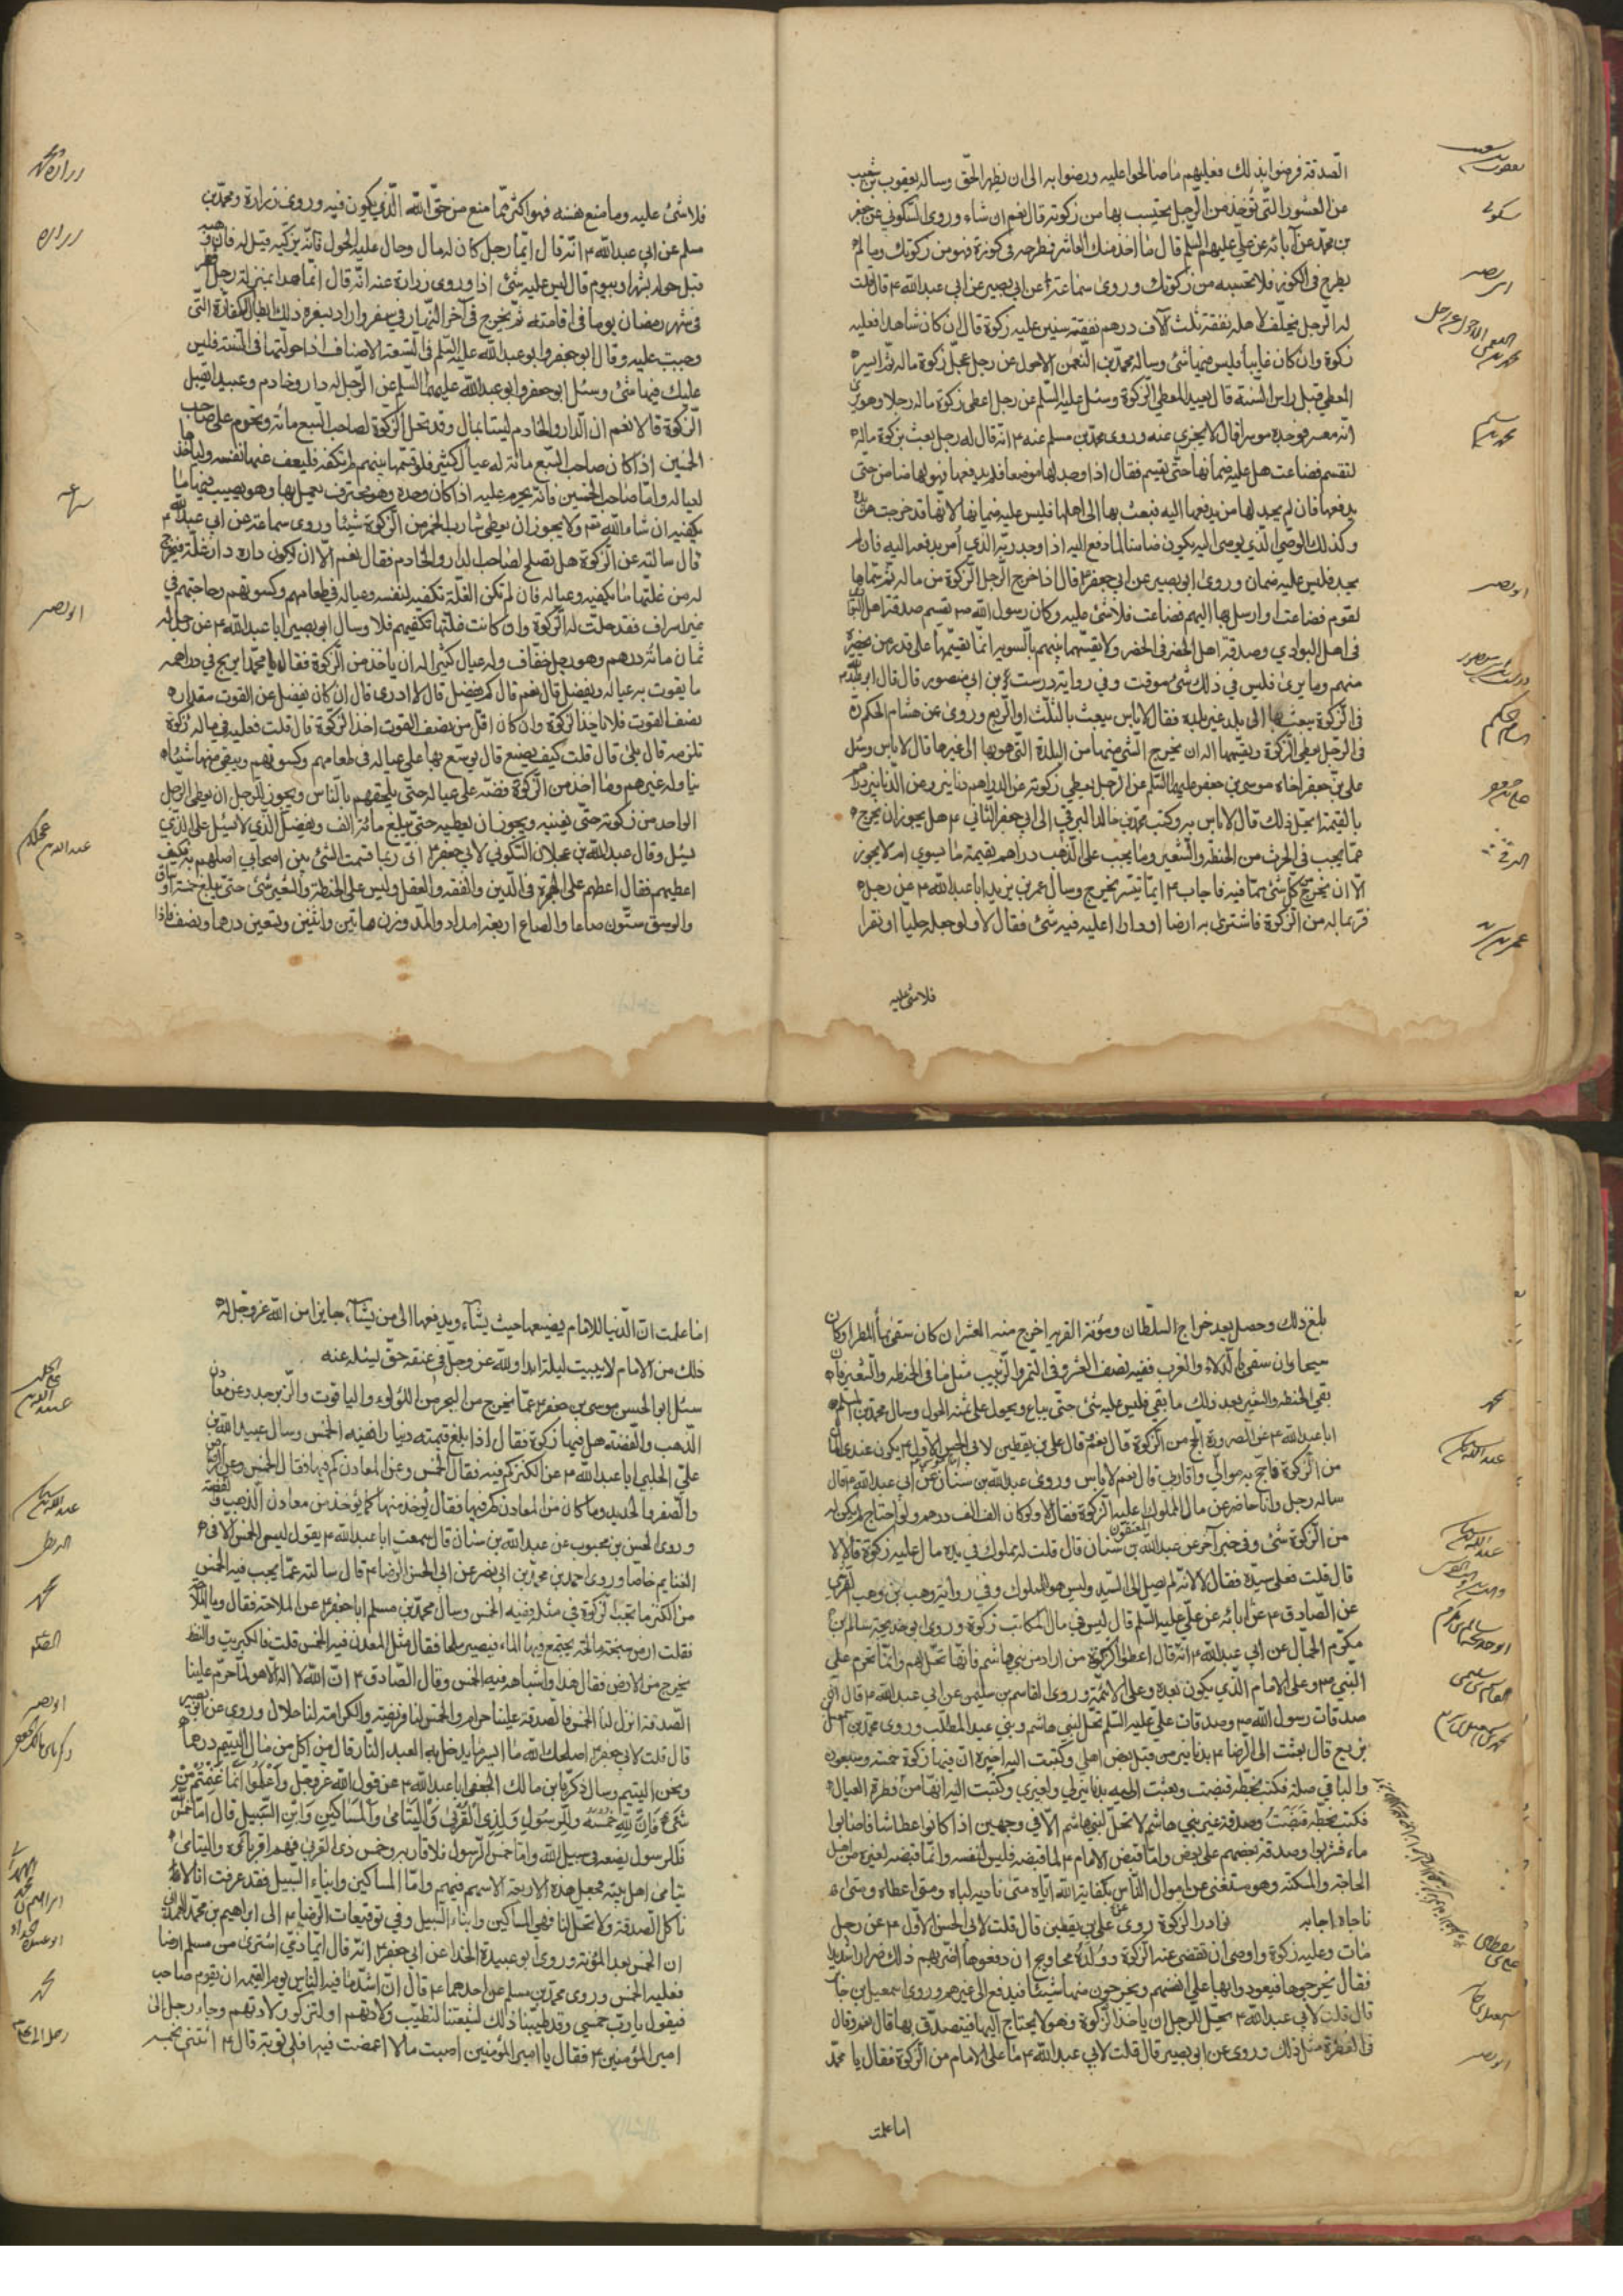 الصدقة فرضوا بذلك فعليهم ما صالحوا عليه ورضوا به الى ان يظهر الحق وساله يعقوب بن شعيب
عن العشور التي تؤخذ من الرجل يحتسب بها من زكوته قال نعم ان شاء وروى السكوني عن جعفر
بن محمد عن آبائه عن علي عليهم السلم قال ما اخذ منك العاشر فطرحه في كوزة فهو من زكوتك وما لم
يطرح في الكوز فلا تحتسبه من زكوتك وروى سماعة عن ابي بصير عن ابي عبد الله ع قال قلت
له الرجل يخلف لاهله نفقة ثلث آلاف درهم نفقة سنين عليه زكوة قال ان كان شاهدا فعليه
زكوة وان كان غايبا فليس فيها شئ وساله محمد بن النعمن الاحول عن رجل عجل زكوة ماله ثم ايسر
المعطى قبل راس السنة قال يعيد المعطي الزكوة وسئل عليه السلم عن رجل اعطى زكوة ماله رجلا وهو يرى
انه معسر فوجده موسرا قال لا يجزي عنه وروى محمد بن مسلم عنه ع انه قال له رجل بعث بزكوة ماله
لتقسم فضاعت هل عليه ضمانها حتى تقسم فقال اذا وجد لها موضعا فلم يدفعها فهو لها ضامن حتى
يدفعها فان لم يجد لها من يدفعها اليه فبعث بها الى اهلها فليس عليه ضمانها لانها قد خرجت من يده
وكذلك الوصي الذي يوصى اليه يكون ضامنا لما دفع اليه اذا وجد ربه الذي أمر بدفعه اليه فان لم
يجد فليس عليه ضمان وروى ابو بصير عن ابي جعفر ع قال اذا خرج الرجل الزكوة من ماله ثم سماها
لقوم فضاعت او ارسل بها اليهم فضاعت فلا شئ عليه وكان رسول الله ص يقسم صدقة اهل البوادي
في اهل البوادي وصدقة اهل الحضر في الحضر ولا يقسمها بينهم بالسوية انما يقسمها على قدر من يحضره
منهم وما يرى فليس في ذلك شئ موقت وفي رواية درست بن ابي منصور قال قال ابو عبد الله ع
في الزكوة يبعث بها الى بلد غير بلده فقال لا باس يبعث بالثلث او الربع وروى عن هشام الحكم
في الرجل يعطي الزكوة يقسمها اله ان يخرج الشئ منها من البلدة التي هو بها الى غيرها قال لا باس وسئل
علي بن جعفر اخاه موسى بن جعفر عليهما السلم عن الرجل يعطي زكوته عن الدراهم دنانير وعن الدنانير دراهم
بالقيمة ايحل ذلك قال لا باس به وكتب محمد بن خالد البرقي الى ابي جعفر الثاني ع هل يجوز ان يخرج
مما يجب في الحرث من الحنطة والشعير وما يجب على الذهب دراهم بقيمة ما يسوى ام لا يجوز
الا ان يخرج من كل شئ مما فيه فاجاب ع ايما تيسر يخرج وسال عمر بن يزيد ابا عبد الله ع عن رجل
فر بماله من الزكوة فاشترى به ارضا او دارا اعليه فيه شئ فقال لا ولو جعله حليا او نقرا
فلا شئ عليه
فلا شئ عليه وما منع نفسه فهو اكثر مما منع من حق الله الذي يكون فيه وروى زرارة ومحمد بن
مسلم عن ابي عبد الله ع انه قال ايما رجل كان له مال وحال عليه الحول فانه يزكيه قيل له فان وهبه
قبل حوله بشهر او بيوم قال ليس عليه شئ اذا وروى زرارة عنه انه قال انما هذا بمنزلة رجل افطر
في شهر رمضان يوما في اقامته ثم يخرج في آخر النهار في سفر واراد بسفره ذلك ابطال الكفارة التي
وجبت عليه وقال ابو جعفر وابو عبد الله عليه السلم في التسعة الاصناف اذا حولتها في السنة فليس
عليك فيها شئ وسئل ابو جعفر وابو عبد الله عليهما السلم عن الرجل له دار وخادم وعبد ايقبل
الزكوة قالا نعم ان الدار والخادم ليستا بمال وقد تحل الزكوة لصاحب السبع مائة وتحرم على صاحب
الخمسين اذا كان صاحب السبع مائة له عيال كثير فلو قسمها بينهم لم تكفه فليعف عنها نفسه ولياخذها
لعياله واما صاحب الخمسين فانه يحرم عليه اذا كان وحده وهو محترف يعمل بها وهو يصيب فيها ما
يكفيه ان شاء الله تع ولا يجوز ان يعطى شارب الخمر من الزكوة شيئا وروى سماعة عن ابي عبد الله ع
قال سالته عن الزكوة هل تصلح لصاحب الدار والخادم فقال نعم الا ان يكون داره دار غلة فيخرج
له من غلتها ما يكفيه وعياله فان لم تكن الغلة تكفيه لنفسه وعياله في طعامهم وكسوتهم وحاجتهم في
غير اسراف فقد حلت له الزكوة وان كانت غلتها تكفيهم فلا وسال ابو بصير ابا عبد الله ع عن رجل له
ثمان مائة درهم وهو رجل خفاف وله عيال كثير اله ان ياخذ من الزكوة فقال يا با محمد ايربح في دراهمه
ما يقوت به عياله ويفضل قال نعم قال كم يفضل قال لا ادرى قال ان كان يفضل عن القوت مقدار
نصف القوت فلا ياخذ الزكوة وان كان اقل من نصف القوت اخذ الزكوة قال قلت فعليه في ماله زكوة
تلزمه قال بلى قال قلت كيف يصنع قال يوسع بها على عياله في طعامهم وكسوتهم ويبقي منها شيئا
يناوله غيرهم وما اخذ من الزكوة فضه على عياله حتى يلحقهم بالناس ويجوز للرجل ان يعطي الرجل
الواحد من زكوته حتى يغنيه ويجوز ان يعطيه حتى يبلغ مائة الف ويفضل الذي لا يسئل على الذي
يسئل وقال عبد الله بن عجلان السكوني لابي جعفر ع اني ربما قسمت الشئ بين اصحابي اصلهم به فكيف
اعطيهم فقال اعطهم على الهجرة في الدين والفقه والعقل وليس على الحنطة والشعير شئ حتى يبلغ خمسة اوساق
والوسق ستون صاعا والصاع اربعة امداد والمد وزن مائتين واثنين وتسعين درهما ونصف فاذا
بلغ ذلك وحصل بعد خراج السلطان ومؤنة القرية اخرج منه العشر ان كان سقى بماء المطر او كان
سيحا وان سقى بالدلاء والغرب ففيه نصف العشر وفي التمر والزبيب مثل ما في الحنطة والشعير فان
بقي الحنطة والشعير بعد ذلك ما بقي فليس عليه شئ حتى يباع ويحول على ثمنه الحول وسال محمد بن مسلم
ابا عبد الله ع عن الصرورة ايحج من الزكوة قال نعم قال علي بن يقطين لابي الحسن الاول ع يكون عندي المال
من الزكوة فاحج به موالي واقاربي قال نعم لا باس وروى عبد الله بن سنان عن ابي عبد الله ع قال
ساله رجل وانا حاضر عن مال المملوك اعليه الزكوة فقال لا ولو كان الف الف درهم ولو احتاج لم يكن له
من الزكوة شئ وفي خبر آخر عن عبد الله بن سنان قال قلت له مملوك في يده مال عليه زكوة قال لا
قال قلت فعلى سيده فقال لا لانه لم يصل الى السيد وليس هو للمملوك وفي رواية وهب بن وهب القرشي
عن الصادق ع عن ابائه عن علي عليه السلم قال ليس في مال المكاتب زكوة وروى ابو خديجة سالم بن
مكرم الجمال عن ابي عبد الله ع انه قال اعطوا الزكوة من ارادها من بني هاشم فانها تحل لهم وانما تحرم على
النبي ص وعلى الامام الذي يكون بعده وعلى الائمة وروى القاسم بن سليمن عن ابي عبد الله ع قال ان
صدقات رسول الله ص وصدقات علي عليه السلم تحل لبني هاشم وبني عبد المطلب وروى محمد بن اسمعيل
بن بزيع قال بعثت الى الرضا ع بدنانير من قبل بعض اهلي وكتبت اليه اخبره ان فيها زكوة خمسة وسبعون
والباقي صلة فكتب بخطه قبضت وبعثت اليه بدنانير لي ولغيري وكتبت اليه انها من فطرة العيال
فكتب بخطه قبضت وصدقة غير بني هاشم لا تحل لبني هاشم الا في وجهين اذا كانوا عطاشا فاصابوا
ماء فشربوا وصدقة بعضهم على بعض واما قبض الامام ع لما قبضه فليس لنفسه وانما قبضه لغيره من اهل
الحاجة والمسكنة وهو مستغنى عن اموال الناس بكفاية الله اياه متى ناداه لباه ومتى اعطاه ومتى
ناجاه اجابه نوادر الزكوة روى علي بن يقطين قال قلت لابي الحسن الاول ع عن رجل
مات وعليه زكوة واوصى ان تقضى عنه الزكوة وولده محاويج ان دفعوها اضر بهم ذلك ضررا شديدا
فقال يخرجوها فيعودوا بها على انفسهم ويخرجون منها شيئا فيدفع الى غيرهم وروى اسمعيل بن جابر
قال قلت لابي عبد الله ع يحل للرجل ان ياخذ الزكوة وهو لا يحتاج اليها فيتصدق بها قال نعم وقال
في الفطرة مثل ذلك وروى عن ابو بصير قال قلت لابي عبد الله ع ما على الامام من الزكوة فقال يا با محمد
اما علمت
اما علمت ان الدنيا للامام يضعها حيث يشاء ويدفعها الى من يشاء جايز من الله عز وجل له
ذلك من الامام لا يبيت ليلة ابدا ولله عز وجل في عنقه حق يسئله عنه
سئل ابو الحسن موسى بن جعفر ع عما يخرج من البحر من اللؤلؤ والياقوت والزبرجد وعن معادن
الذهب والفضة هل فيها زكوة فقال اذا بلغ قيمته دينارا ففيه الخمس وسال عبيد الله بن
علي الحلبي ابا عبد الله ع عن الكنز كم فيه فقال الخمس وعن المعادن كم فيها فقال الخمس وعن الرصاص
والصفر والحديد وما كان من المعادن كم فيها فقال يؤخذ منها كما يؤخذ من معادن الذهب والفضة
وروى الحسن بن محبوب عن عبد الله بن سنان قال سمعت ابا عبد الله ع يقول ليس الخمس الا في
الغنايم خاصا وروى احمد بن محمد بن ابي نصر عن ابي الحسن الرضا ع قال سالته عما يجب فيه الخمس
من الكنز ما تجب الزكوة في مثله ففيه الخمس وسال محمد بن مسلم ابا جعفر ع عن الملاحة فقال وما الملاحة
فقلت ارض سبخة مالحة يجتمع فيها الماء فيصير ملحا فقال مثل المعدن فيه الخمس قلت فالكبريت والنفط
يخرج من الارض فقال هذا واشباهه فيه الخمس وقال الصادق ع ان الله لا اله الا هو لما حرم علينا
الصدقة انزل لنا الخمس فالصدقة علينا حرام والخمس لنا فريضة والكرامة لنا حلال وروى عن ابي بصير
قال قلت لابي جعفر ع اصلحك الله ما ايسر ما يدخل به العبد النار قال من اكل من مال اليتيم درهما
ونحن اليتيم وسال زكريا بن مالك الجعفي ابا عبد الله ع عن قول الله عز وجل واعلموا انما غنمتم من
شئ فان لله خمسه وللرسول ولذي القربى واليتامى والمساكين وابن السبيل قال اما خمس الله
فللرسول يضعه في سبيل الله واما خمس الرسول فلاقاربه وخمس ذى القربى فهم اقرباؤه واليتامى
يتامى اهل بيته فجعل هذه الاربعة الاسهم فيهم واما المساكين وابناء السبيل فقد عرفت انا لا
ناكل الصدقة ولا تحل لنا فهي للمساكين وابناء السبيل وفي توقيعات الرضا ع الى ابراهيم بن محمد الهمداني
ان الخمس بعد المؤنة وروى ابو عبيدة الحذا عن ابي جعفر ع انه قال ايما ذمي اشترى من مسلم ارضا
فعليه الخمس وروى محمد بن مسلم عن احدهما ع قال ان اشد ما فيه الناس يوم القيمة ان يقوم صاحب
فيقول يا رب خمسي وقد طيبنا ذلك لشيعتنا لتطيب ولادتهم او لتزكو ولادتهم وجاء رجل الى
امير المؤمنين ع فقال يا امير المؤمنين اصبت مالا اغمضت فيه افلي توبة قال ع ائتني بخمسه